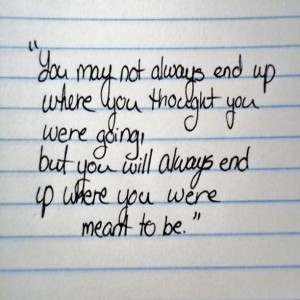 "You may not always end up
where you thought you
were going,
but you will always end
up where you were
meant to be."